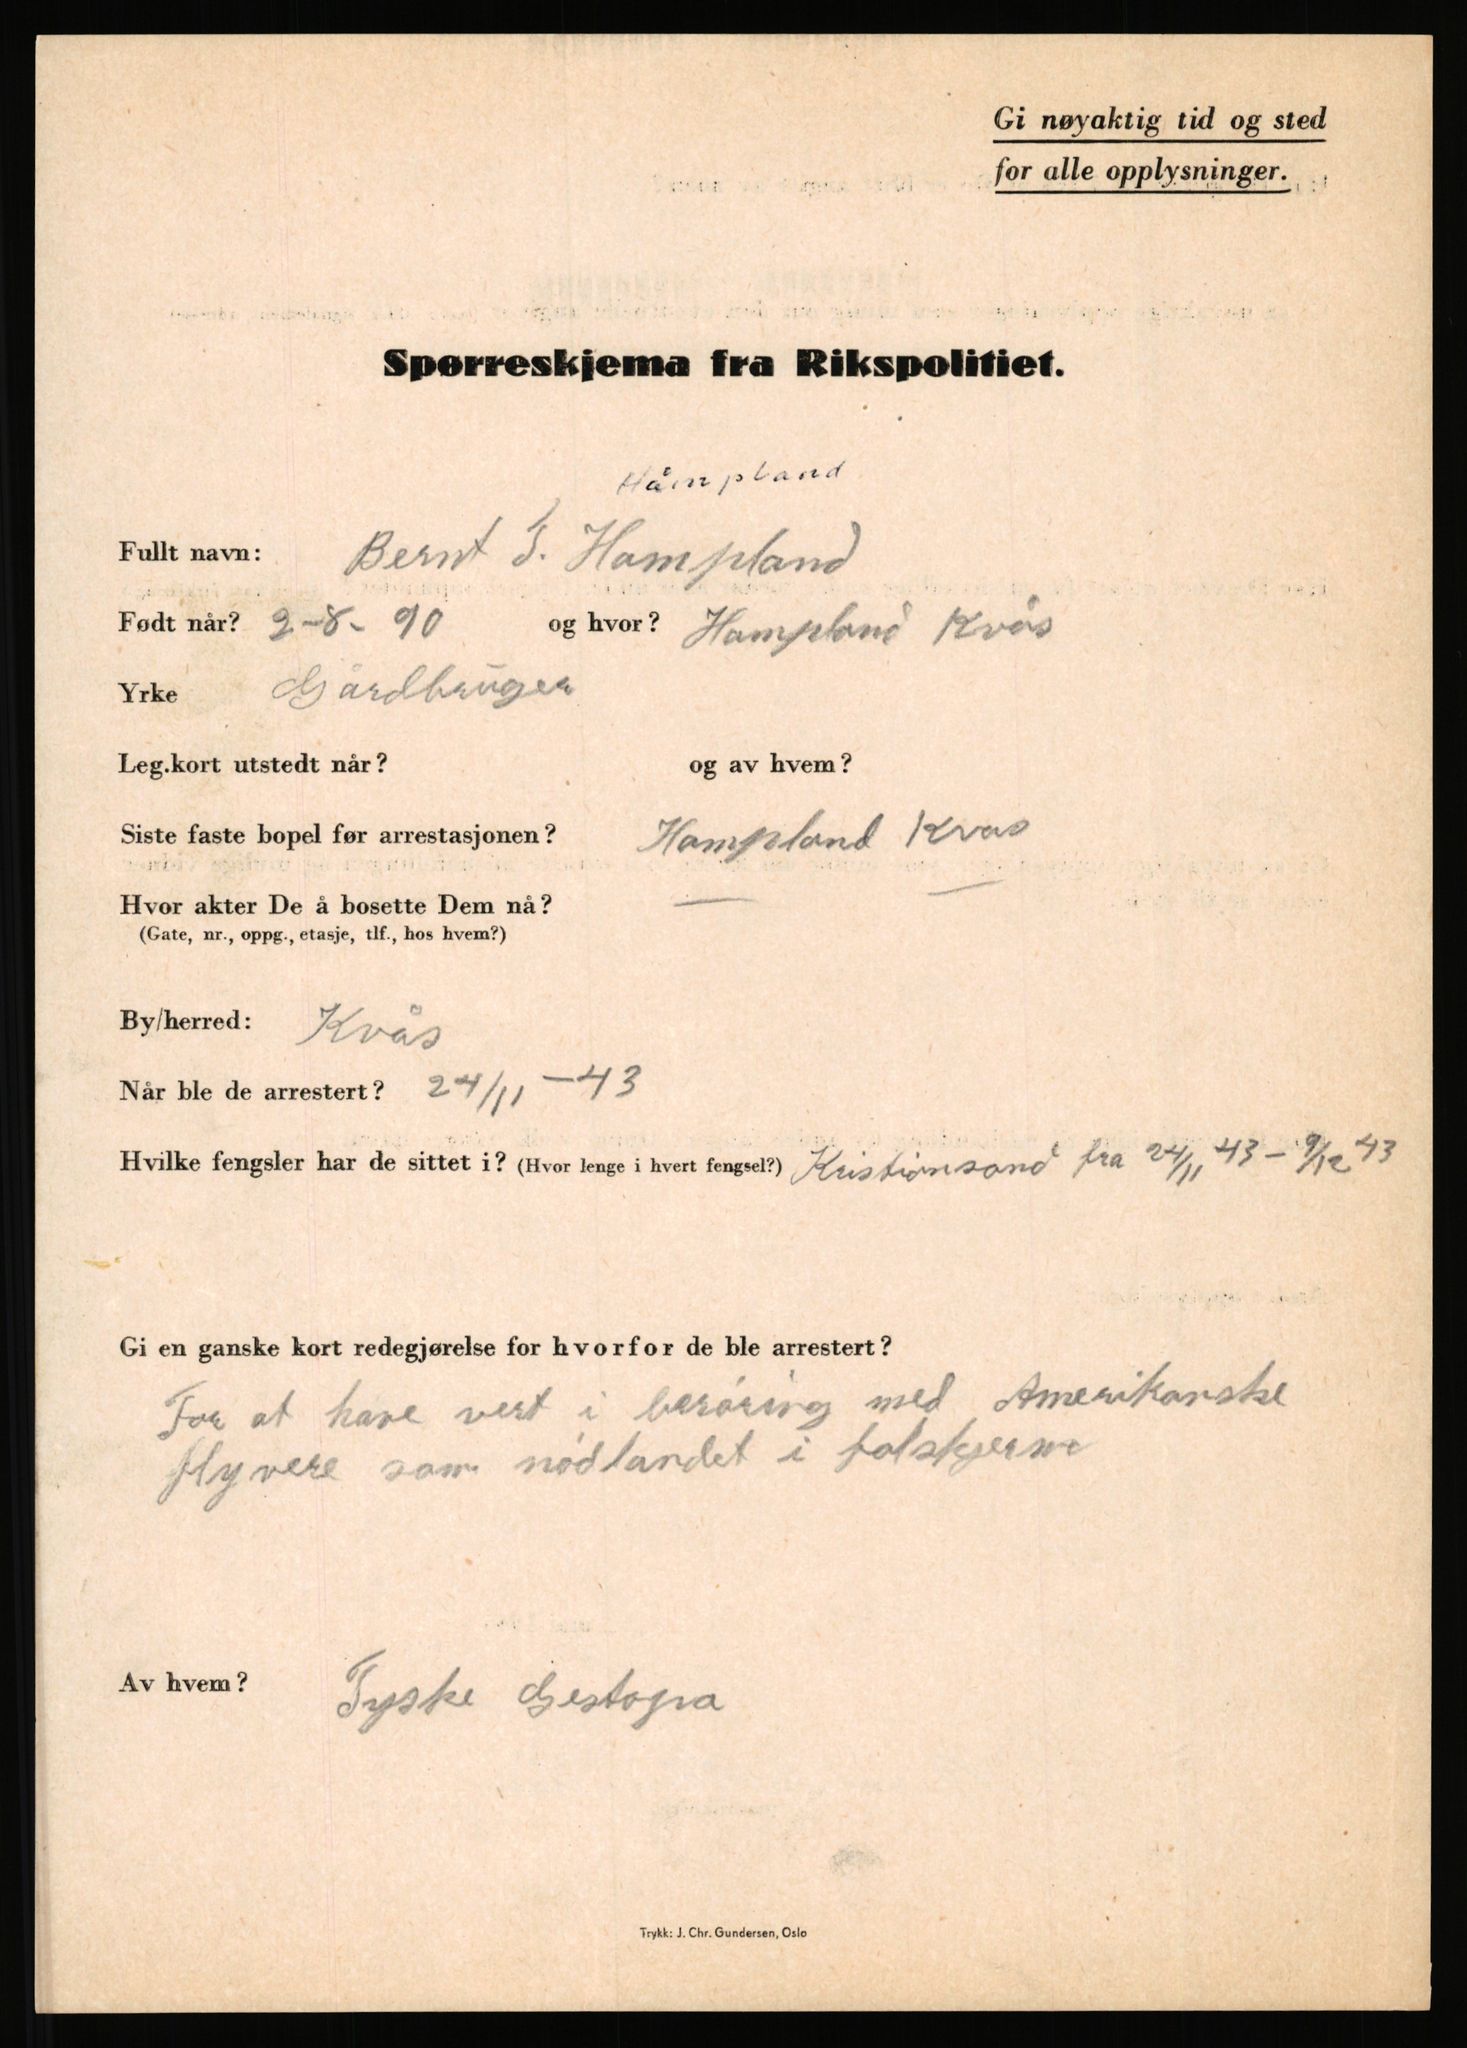 Gi nøyaktig tid og sted
for alle opplysninger.
Spørreskjema fra Rikspolitiet.
Håmpland
Fullt navn: Bernt J. Hampland
Født når? 2-8-90 og hvor? Hampland Kvås
Yrke Gårdbrüger
Leg.kort utstedt når? og av hvem?
Siste faste bopel før arrestasjonen? Hampland Kvas
Hvor akter De å bosette Dem nå? — —
(Gate, nr., oppg., etasje, tlf., hos hvem?)
By/herred: Kvås
Når ble de arrestert? 24/11 -43
Hvilke fengsler har de sittet i? (Hvor lenge i hvert fengsel?) Kristiansand fra 24/11 43 - 9/12 43
Gi en ganske kort redegjørelse for hvorfor de ble arrestert?
For at have vert i beröring med Amerikanske
flyvere som nødlandet i falskjerm
Av hvem? Tyske Gestapa
Trykk: J. Chr. Gundersen, Oslo